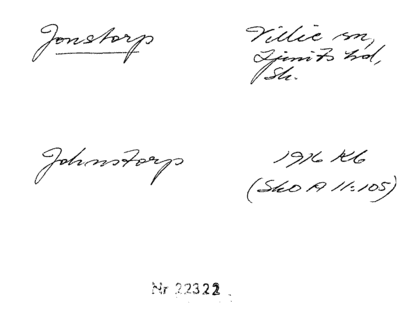 Jonstorp
Villie sn,
Ljunits hd,
Sk.
Johnstorp
1916 Kb
(SkO A 11:105)
Nr 22322